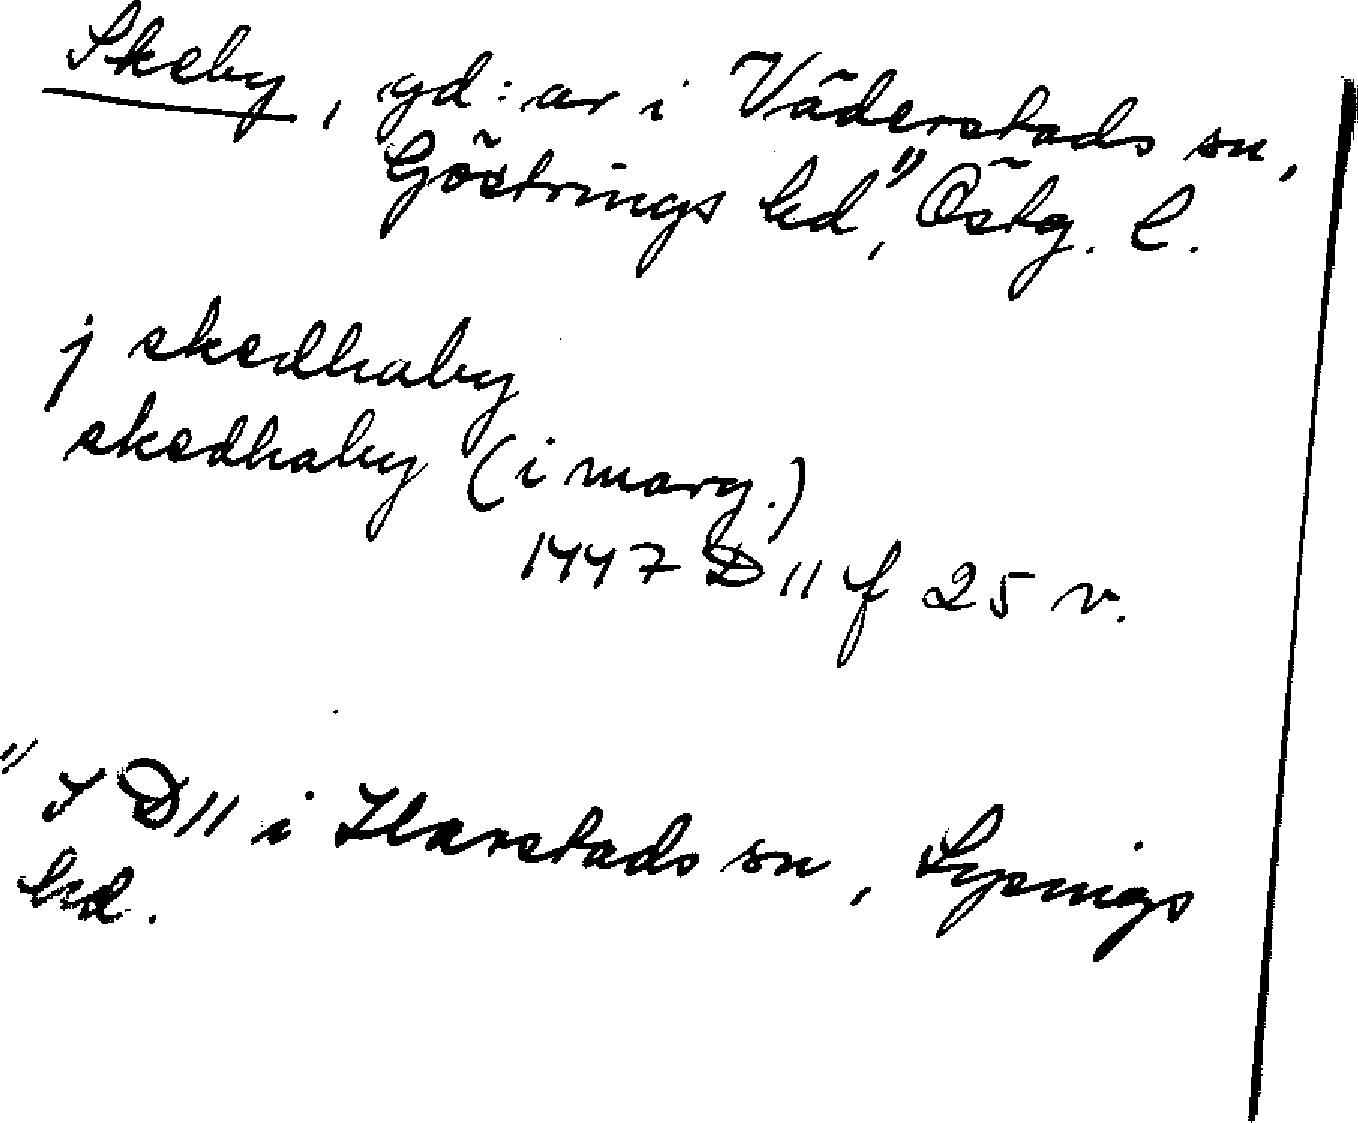 Skeby, gd:ar i Väderstads sn,
Göstrings hd,¹⁾ Östg. l.
j skedhaby
skedhaby (i marg.)
1447 D 11 f 25 v.
¹⁾ I D 11 i Harstads sn, Lysings
hd.